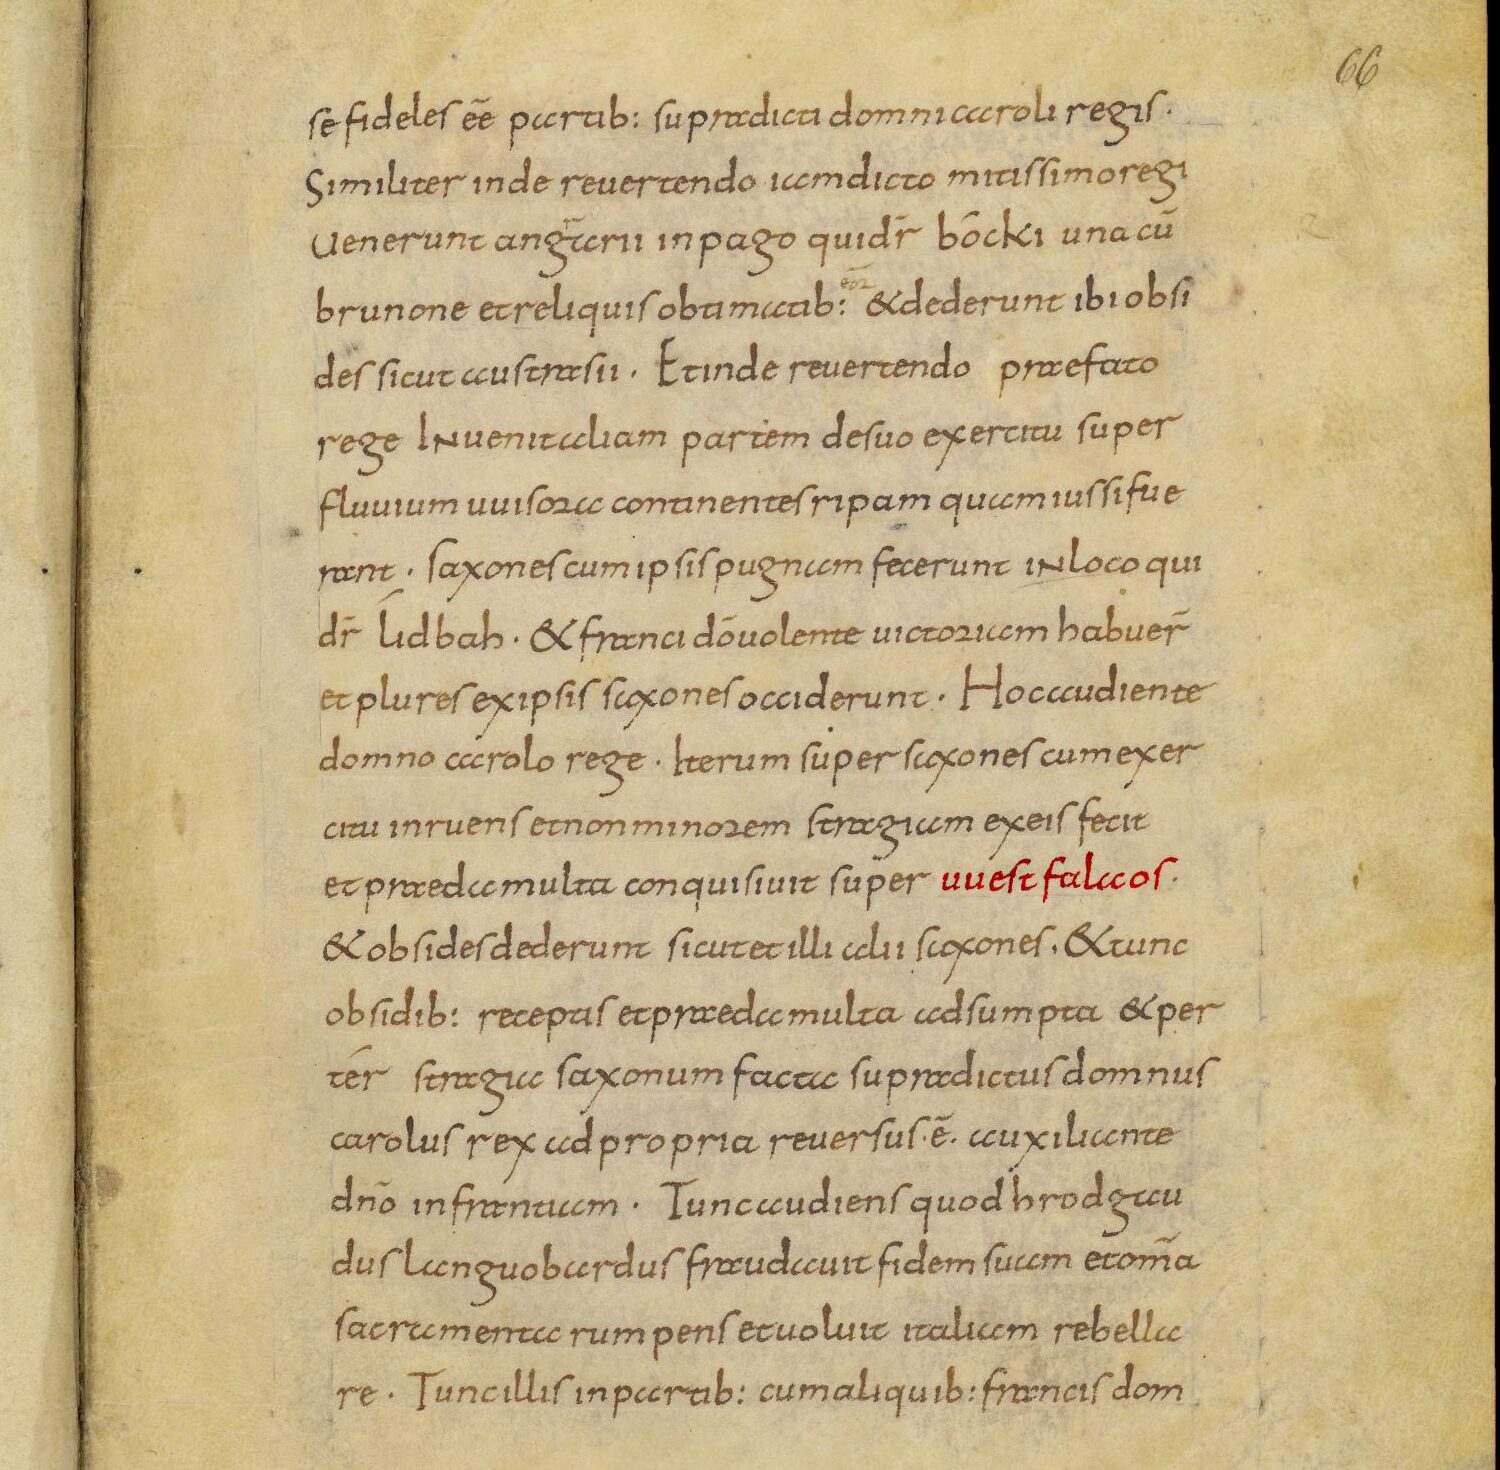 66
se fideles eē partib: supradicti domni caroli regis.
Similiter inde revertendo iamdicto mitissimo regi
Venerunt angrarii in pago qui dr̄ bōcki una cū
brunone et reliquis obtimatib: eoꝝ & dederunt ibi obsi
des sicut austrasii. Et inde revertendo praefato
rege Invenit aliam partem de suo exercitu super
fluvium uuisora continentes ripam quam iussi fue
rant. saxones cum ipsis pugnam fecerunt in loco qui
dr̄ lidbah. & franci dō volente uictoriam habuer̄
et plures ex ipsis saxones occiderunt. Hoc audiente
domno carolo rege. Iterum super saxones cum exer
citu inruens et non minorem stragiam ex eis fecit
et praeda multa conquisiuit super uuestfalaos.
& obsides dederunt sicut et illi alii saxones. & tunc
obsidib: receptis et praeda multa adsumpta & per
tēr stragia saxonum facta supradictus domnus
carolus rex ad propria reuersus.ē. auxiliante
dnō in franciam. Tunc audiens quod hrodgau
dus languobardus fraudauit fidem suam et om̄a
sacramenta rumpens et uoluit italiam rebella
re. Tunc illis in partib: cum aliquib: francis dom